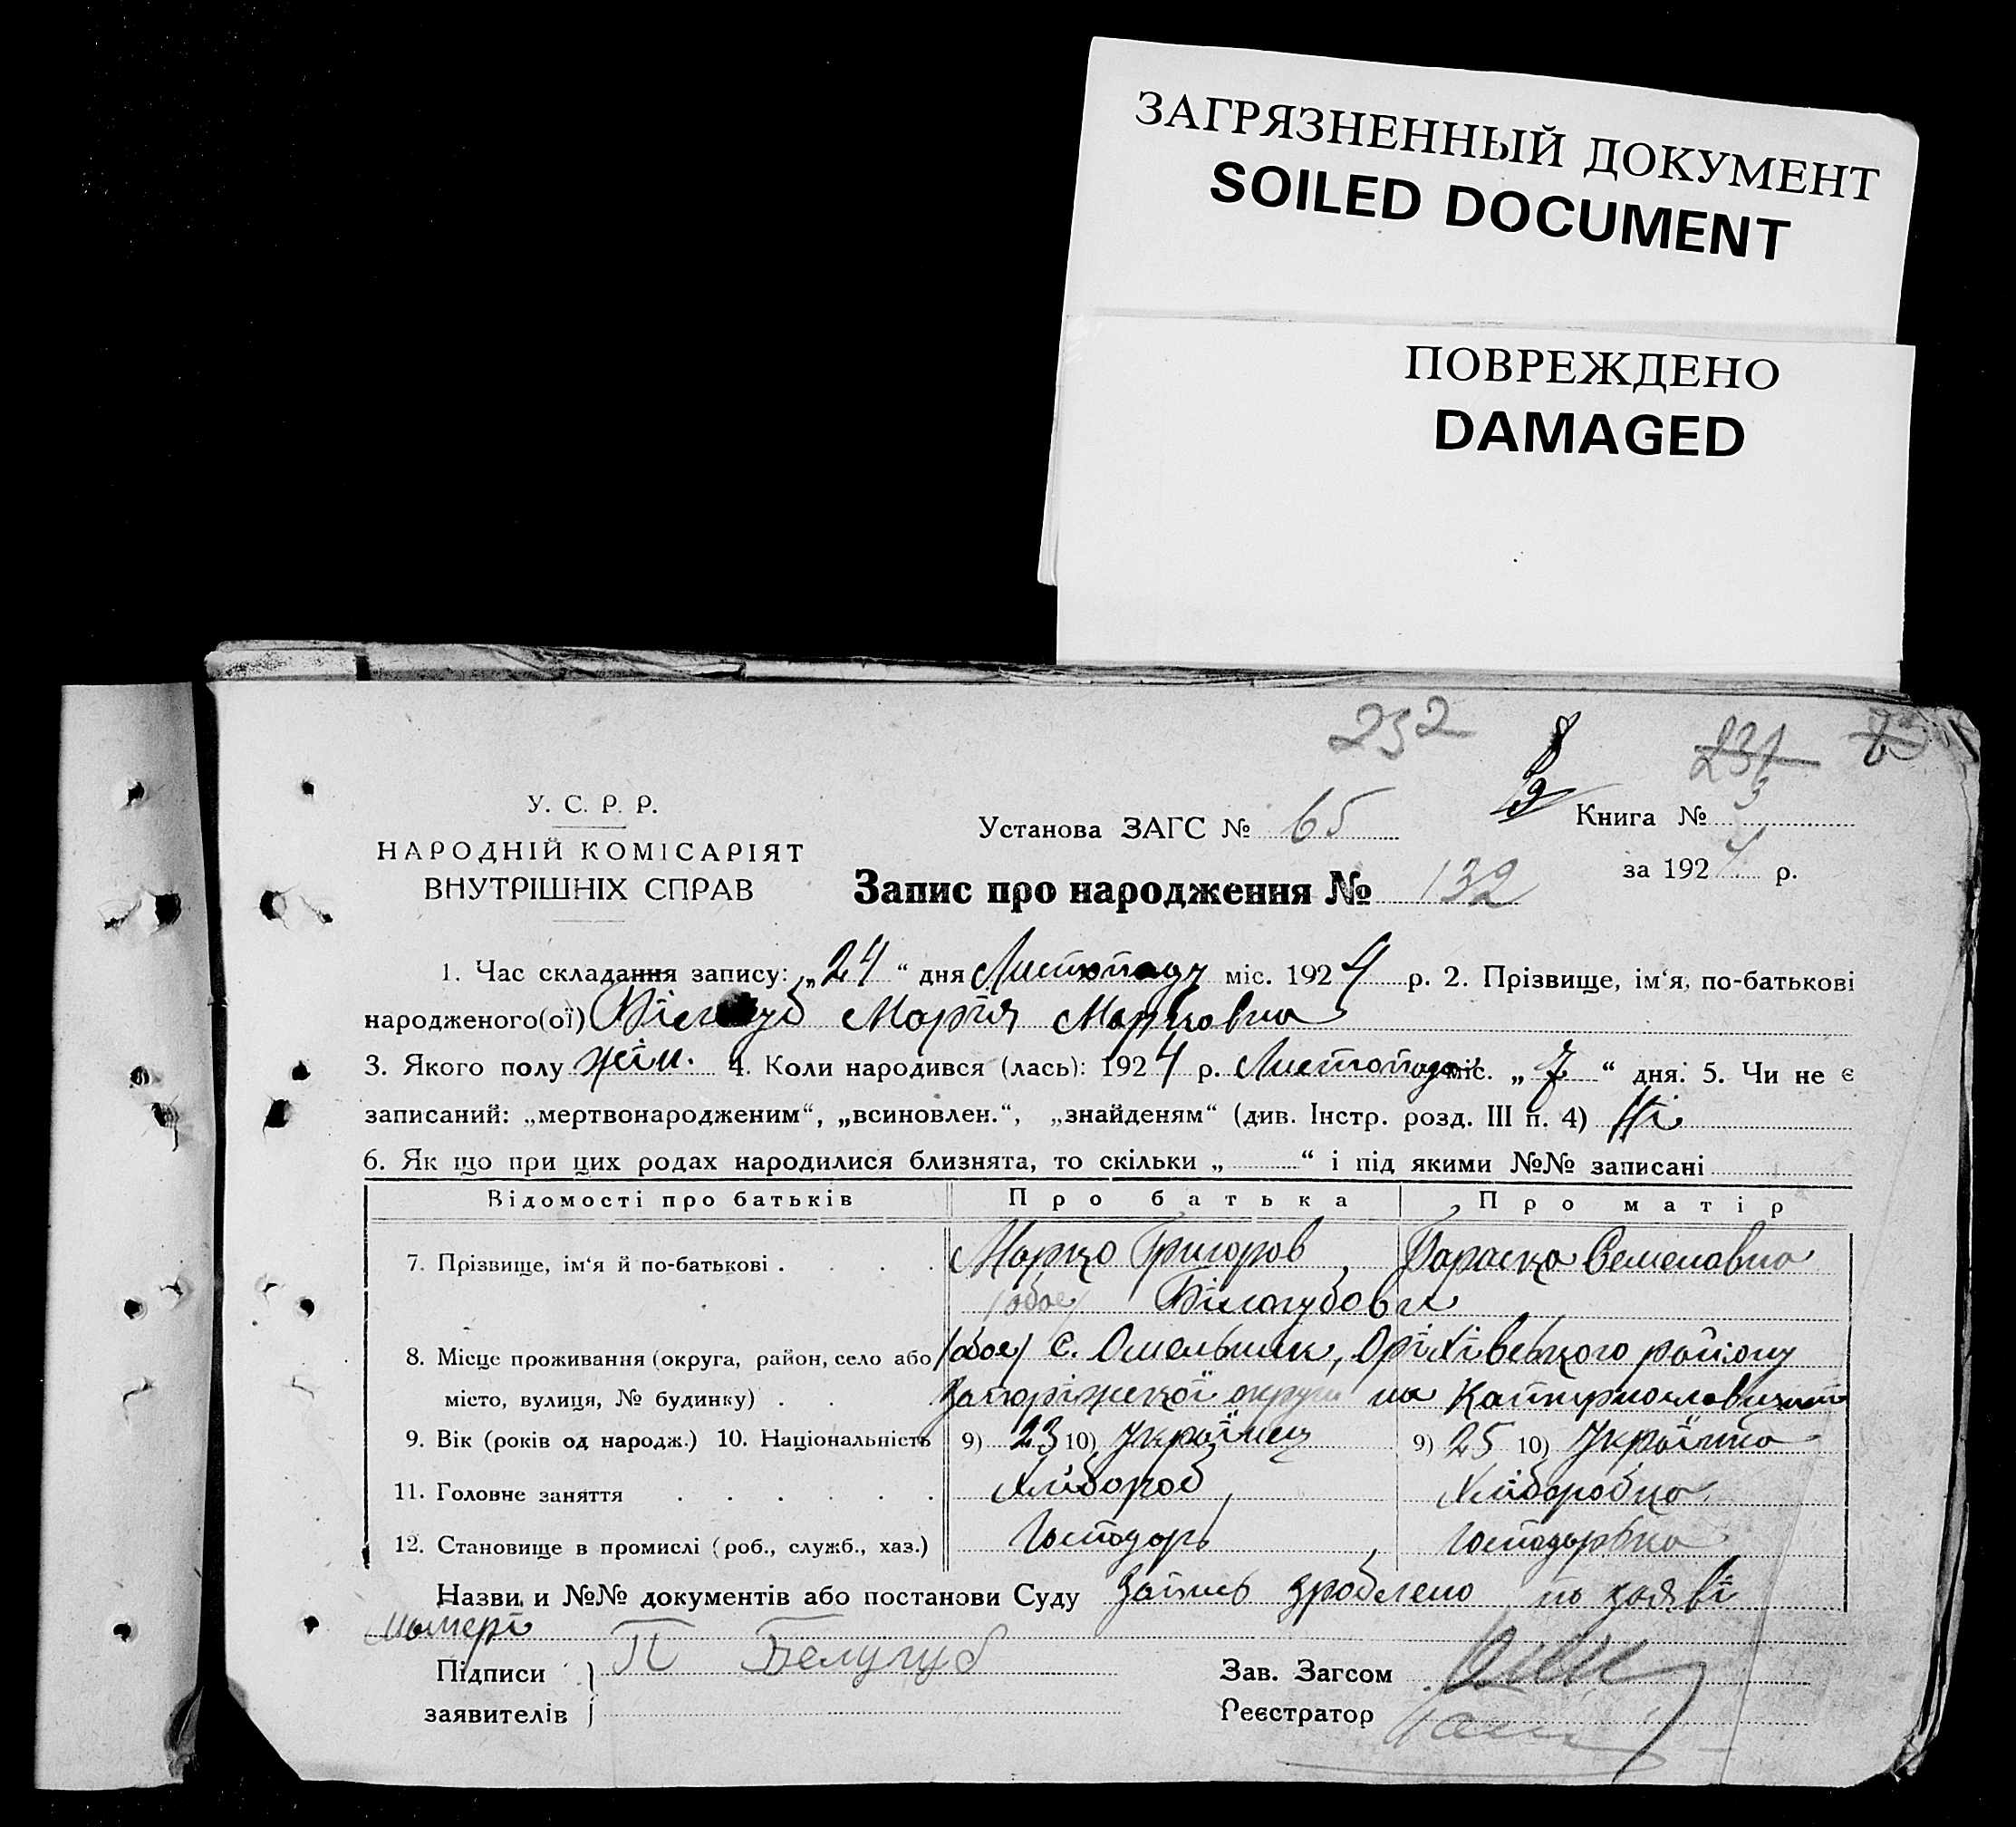 ЗАГРЯЗНЕННЫЙ ДОКУМЕНТ
SOILED DOCUMENT
ПОВРЕЖДЕНО
DAMAGED
252
231
У. С. Р. Р.
НАРОДНІЙ КОМІСАРІЯТ
ВНУТРІШНІХ СПРАВ
Установа ЗАГС № 65
Книга № 3
за 1924 р.
Запис про народження № 132
1. Час складання запису: „24“ дня Листопаду міс. 1924 р. 2. Прізвище, ім‘я, по-батькові
народженого(ої) Білогуб Марія Марковна
3. Якого полу жін. 4. Коли народився (лась): 1924 р. Листопада міс. „7“ дня. 5. Чи не є
записаний: „мертвонародженим“, „всиновлен.“, „знайденям“ (див. Інстр. розд. III п. 4) Ні
6. Як що при цих родах народилися близнята, то скільки „ “ і під якими №№ записані
Відомості про батьків Про батька Про матір
7. Прізвище, ім‘я й по-батькові . Марко Григоров, Параска Семеновна
(обоє) Білогубови
8. Місце проживання (округа, район, село або (обоє) с. Омельник, Оріхівського району
місто, вулиця, № будинку) . . Запоріжської округи на Катеринославщині
9. Вік (років од народж.) 10. Національність 9) 23 10) Українец 9) 25 10) Українка
11. Головне заняття Хлібороб, Хліборобка
12. Становище в промислі (роб., служб., хаз.) Господарь, Господарька
Назви и №№ документів або постанови Суду Запись зроблено по заяві
матері
Підписи П Белугуб
заявителів
Зав. Загсом
Реєстратор